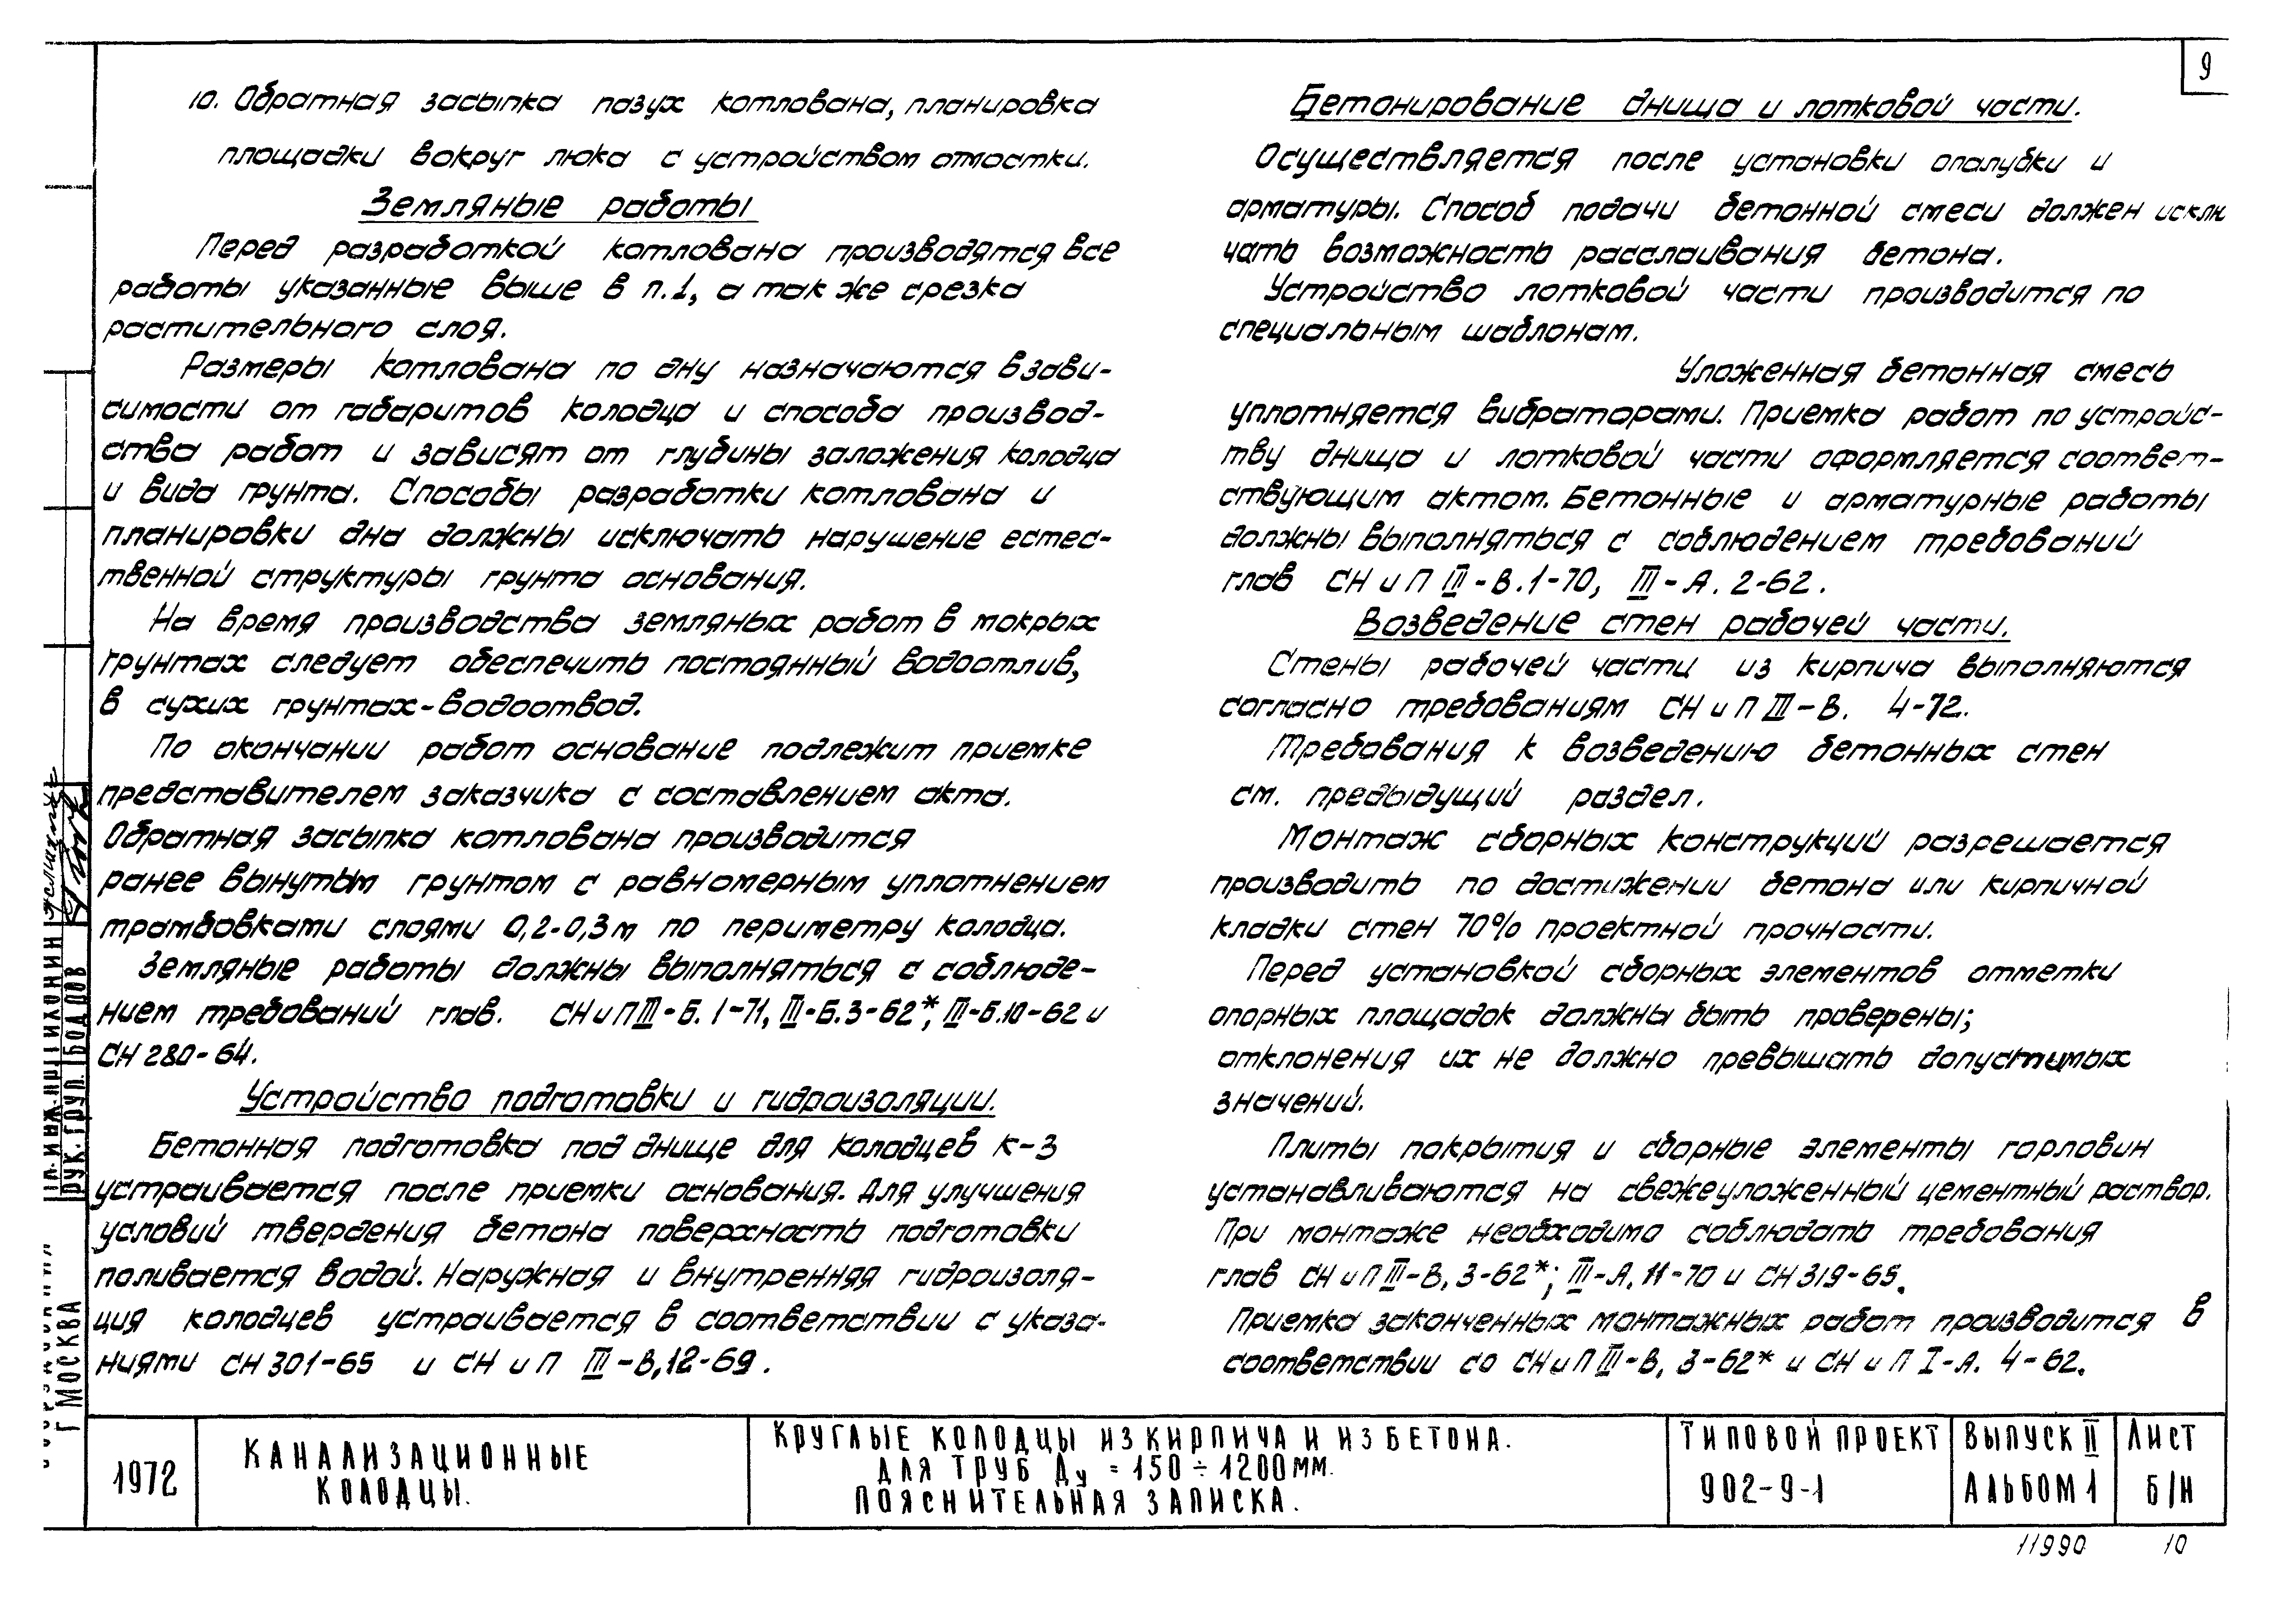 9
10. Обратная засыпка пазух котлована, планировка
площадки вокруг люка с устройством отмостки.
Земляные работы
Перед разработкой котлована производятся все
работы указанные выше в п.1, а так же срезка
растительного слоя.
Размеры котлована по дну назначаются в зави-
симости от габаритов колодца и способа производ-
ства работ и зависят от глубины заложения колодца
и вида грунта. Способы разработки котлована и
планировки дна должны исключать нарушение естес-
твенной структуры грунта основания.
На время производства земляных работ в мокрых
грунтах следует обеспечить постоянный водоотлив,
в сухих грунтах-водоотвод.
По окончании работ основание подлежит приемке
представителем заказчика с составлением акта.
Обратная засыпка котлована производится
ранее вынутым грунтом с равномерным уплотнением
трамбовками слоями 0,2-0,3м по периметру колодца.
Земляные работы должны выполняться с соблюде-
нием требований глав. СНиП III-Б. 1-71, III-Б.3-62*, III-Б.10-62 и
СН 280-64.
Устройство подготовки и гидроизоляции.
Бетонная подготовка под днище для колодцев К-3
устраивается после приемки основания. Для улучшения
условий твердения бетона поверхность подготовки
поливается водой. Наружная и внутренняя гидроизоля-
ция колодцев устраивается в соответствии с указа-
ниями СН 301-65 и СН и П III-В,12-69.
Бетонирование днища и лотковой части.
Осуществляется после установки опалубки и
арматуры. Способ подачи бетонной смеси должен исклю
чать возможность расслаивания бетона.
Устройство лотковой части производится по
специальным шаблонам.
Уложенная бетонная смесь
уплотняется вибраторами. Приемка работ по устройс-
тву днища и лотковой части оформляется соответ-
ствующим актом. Бетонные и арматурные работы
должны выполняться с соблюдением требований
глав СН и П III-В.1-70, III-А. 2-62.
Возведение стен рабочей части.
Стены рабочей части из кирпича выполняются
согласно требованиям СН и П III-В. 4-72.
Требования к возведению бетонных стен
см. предыдущий раздел.
Монтаж сборных конструкций разрешается
производить по достижении бетона или кирпичной
кладки стен 70% проектной прочности.
Перед установкой сборных элементов отметки
опорных площадок должны быть проверены;
отклонения их не должно превышать допустимых
значений.
Плиты покрытия и сборные элементы горловин
устанавливаются на свежеуложенный цементный раствор.
При монтаже необходимо соблюдать требования
глав СН и П III-В, 3-62*; III-А, 11-70 и СН 319-65.
Приемка законченных монтажных работ производится в
соответствии со СНиП III-В, 3-62* и СН и П I-А. 4-62.
РУК. ГРУП. БОДДОВ
Г МОСКВА
1972
КАНАЛИЗАЦИОННЫЕ
КОЛОДЦЫ.
КРУГЛЫЕ КОЛОДЦЫ ИЗ КИРПИЧА И ИЗ БЕТОНА.
ДЛЯ ТРУБ Ду = 150 ÷ 1200 ММ.
ПОЯСНИТЕЛЬНАЯ ЗАПИСКА.
ТИПОВОЙ ПРОЕКТ
902-9-1
ВЫПУСК II
АЛЬБОМ 1
ЛИСТ
Б/Н
11990 10